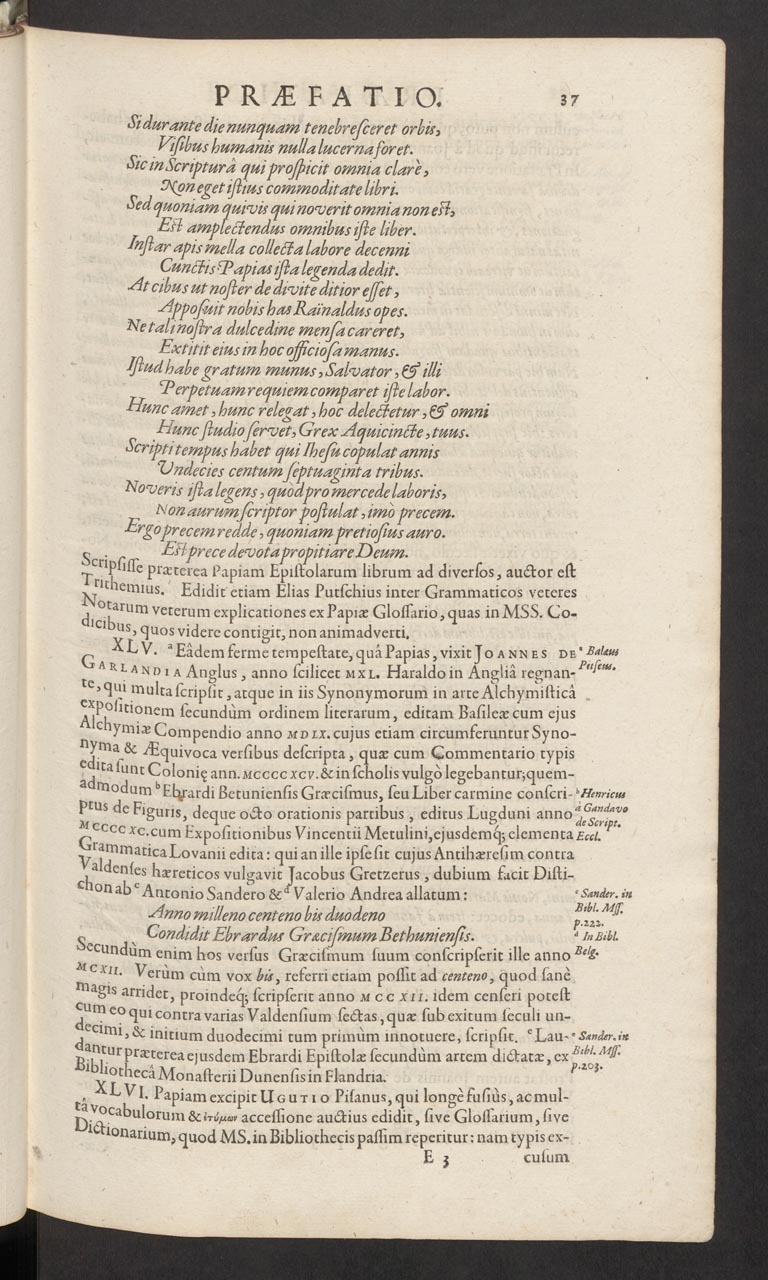 PRÆFATIO. 37
Si durante die nunquam tenebresceret orbis,
Visibus humanis nulla lucerna foret.
Sic in Scripturâ qui prospicit omnia clarè,
Non eget istius commoditate libri.
Sed quoniam quivis qui noverit omnia non est,
Est amplectendus omnibus iste liber.
Instar apis mella collecta labore decenni
Cunctis Papias ista legenda dedit.
At cibus ut noster de divite ditior esset,
Apposuit nobis has Raïnaldus opes.
Ne tali nostra dulcedine mensa careret,
Extitit eius in hoc officiosa manus.
Istud habe gratum munus, Salvator, & illi
Perpetuam requiem comparet iste labor.
Hunc amet, hunc relegat, hoc delectetur, & omni
Hunc studio servet, Grex Aquicincte, tuus.
Scripti tempus habet qui Ihesu copulat annis
Undecies centum septuaginta tribus.
Noveris ista legens, quòd pro mercede laboris,
Non aurum scriptor postulat, imò precem.
Ergo precem redde, quoniam pretiosius auro.
Est prece devota propitiare Deum.
Scripsisse præterea Papiam Epistolarum librum ad diversos, auctor est
Trithemius. Edidit etiam Elias Putschius inter Grammaticos veteres
Notarum veterum explicationes ex Papiæ Glossario, quas in MSS. Co-
dicibus, quos videre contigit, non animadverti.
XLV. ᵃ Eâdem ferme tempestate, quâ Papias, vixit JOANNES DE
GARLANDIA Anglus, anno scilicet MXL. Haraldo in Angliâ regnan-
te, qui multa scripsit, atque in iis Synonymorum in arte Alchymisticâ
expositionem secundùm ordinem literarum, editam Basileæ cum ejus
Alchymiæ Compendio anno MDLX. cujus etiam circumferuntur Syno-
nyma & Æquivoca versibus descripta, quæ cum Commentario typis
edita sunt Colonię ann. MCCCCXCV. & in scholis vulgò legebantur; quem-
admodum ᵇ Ebrardi Betuniensis Græcismus, seu Liber carmine conscri-
ptus de Figuris, deque octo orationis partibus, editus Lugduni anno
MCCCCXC. cum Expositionibus Vincentii Metulini, ejusdemq; elementa
Grammatica Lovanii edita: qui an ille ipse sit cujus Antihæresim contra
Valdenses hæreticos vulgavit Jacobus Gretzerus, dubium facit Disti-
chon ab ᶜ Antonio Sandero & ᵈ Valerio Andrea allatum:
Anno milleno centeno bis duodeno
Condidit Ebrardus Græcismum Bethuniensis.
Secundùm enim hos versus Græcismum suum conscripserit ille anno
MCXII. Verùm cùm vox bis, referri etiam possit ad centeno, quod sanè
magis arridet, proindeq; scripserit anno MCCXII. idem censeri potest
cum eo qui contra varias Valdensium sectas, quæ sub exitum seculi un-
decimi, & initium duodecimi tum primùm innotuere, scripsit. ᵉ Lau-
dantur præterea ejusdem Ebrardi Epistolæ secundùm artem dictatæ, ex
Bibliothecâ Monasterii Dunensis in Flandria.
XLVI. Papiam excipit UGUTIO Pisanus, qui longè fusiùs, ac mul-
tâ vocabulorum & ἐτύμων accessione auctius edidit, sive Glossarium, sive
Dictionarium, quod MS. in Bibliothecis passim reperitur: nam typis ex-
E 3 cusum
ᵃ Balæus
Pitseus.
ᵇ Henricus
à Gandavo
de Script.
Eccl.
ᶜ Sander. in
Bibl. Mss.
p. 222.
ᵈ In Bibl.
Belg.
ᵉ Sander. in
Bibl. Mss.
p. 203.